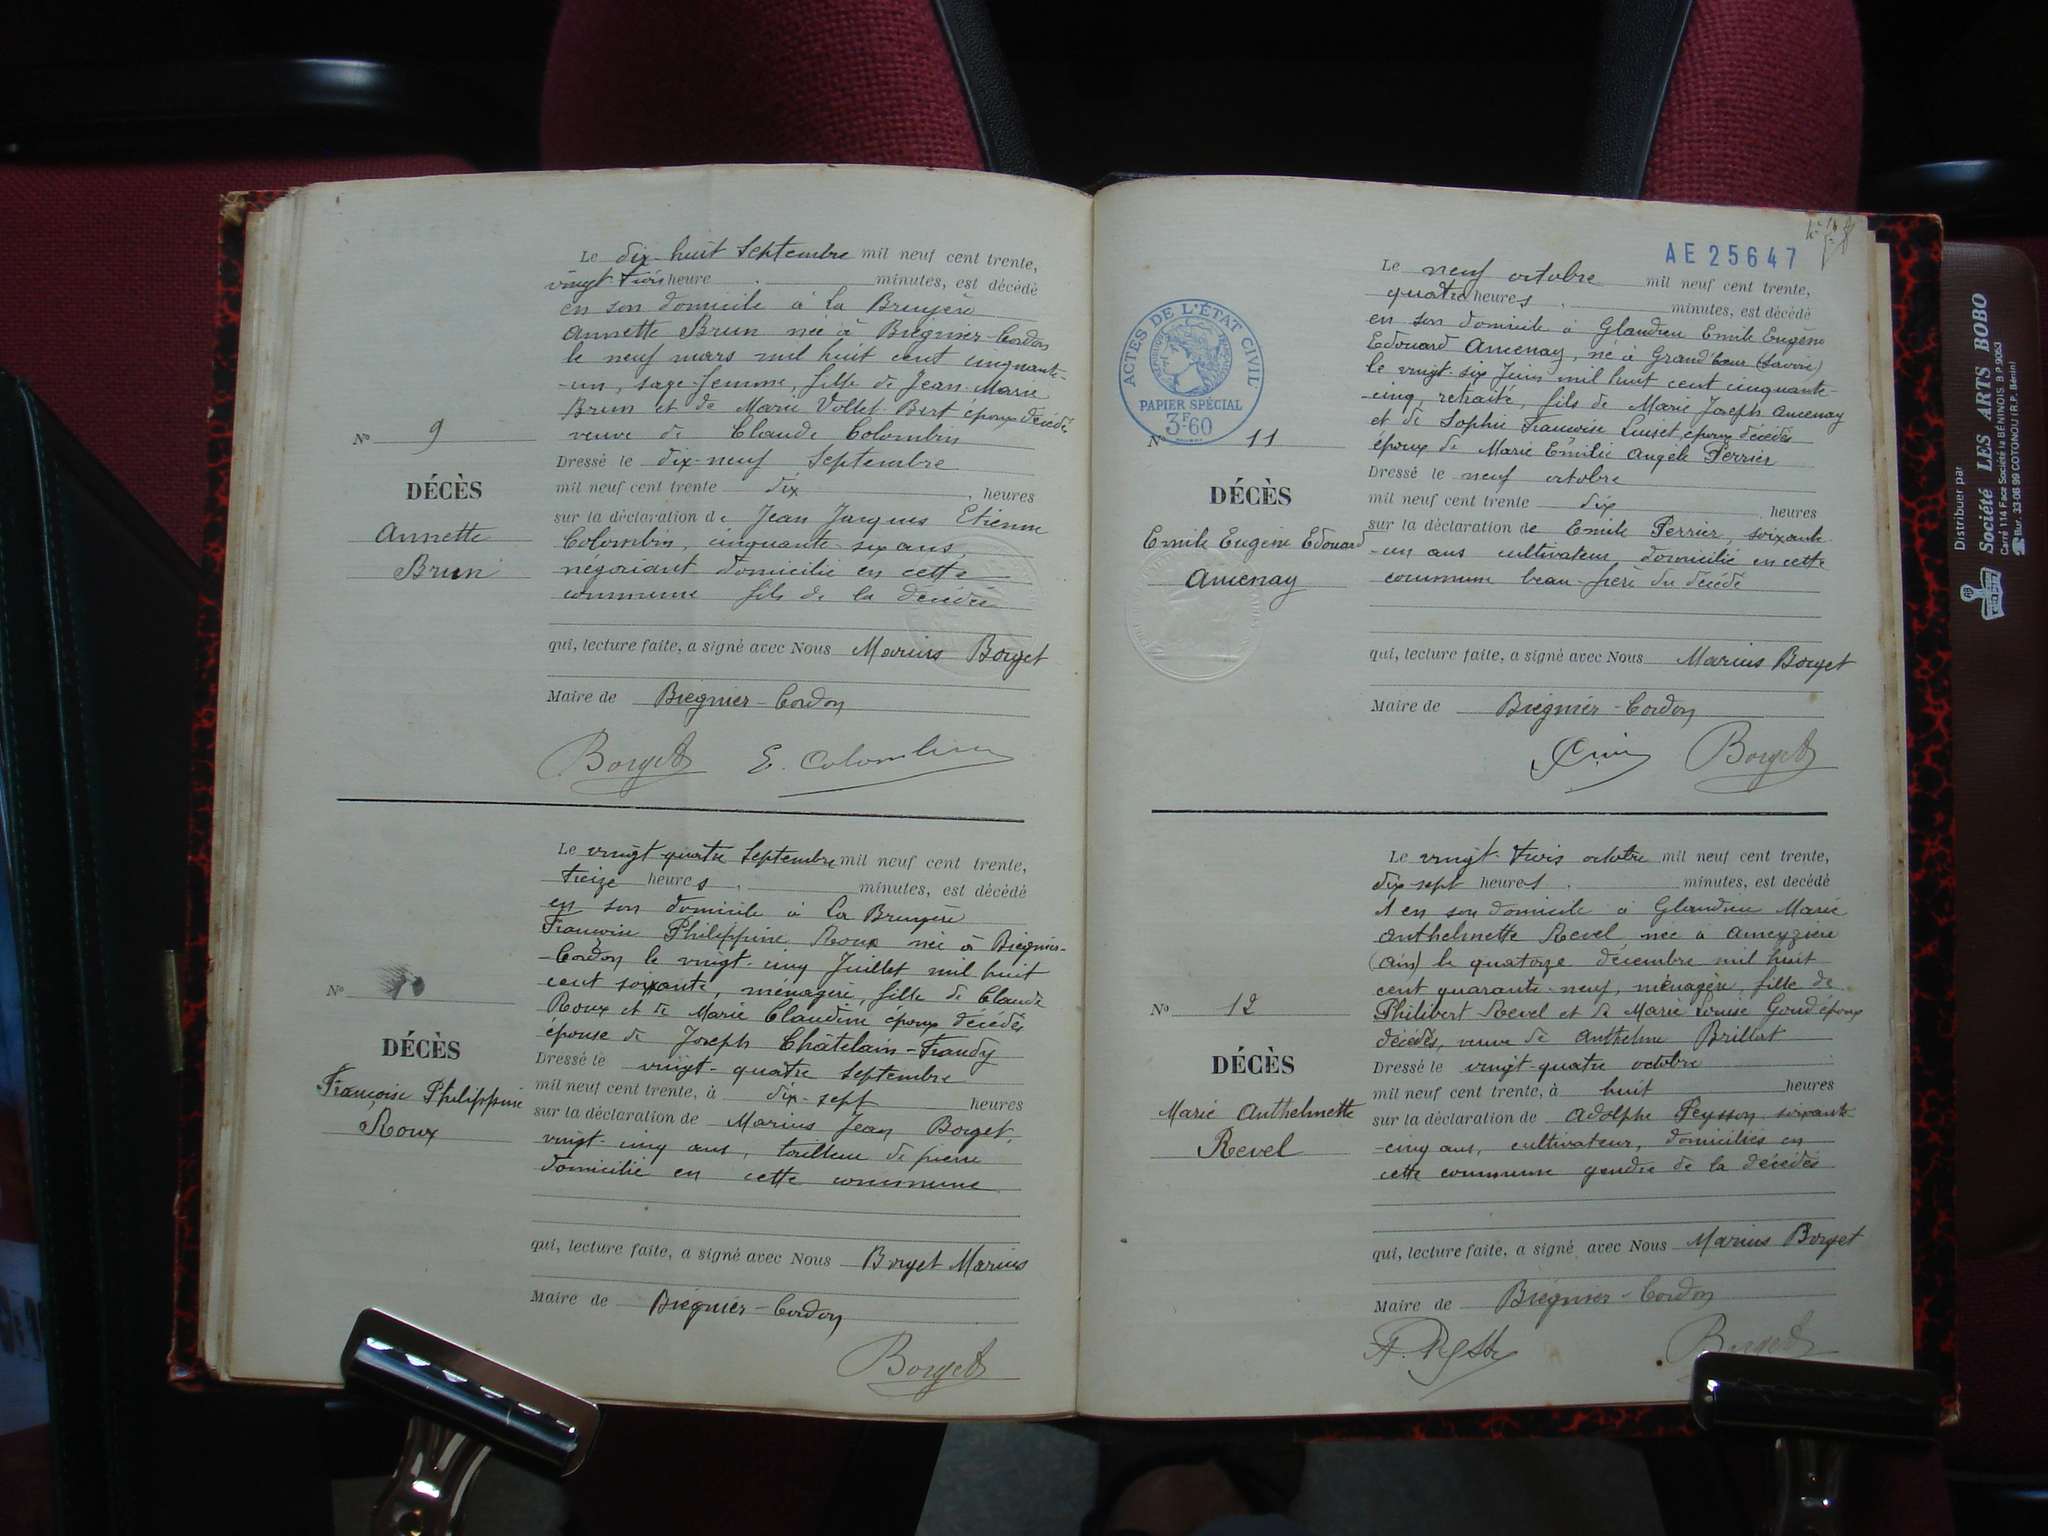 Le dix-huit Septembre mil neuf cent trente,
vingt trois heure minutes, est décédé
en son domicile à La Bruyère
Annette Brun née à Brégnier-Cordon
le neuf mars mil huit cent cinquante-
-un, sage-femme, fille de Jean-Marie
Brun et de Marie Vollet-Bert époux décédés
veuve de Claude Colombin
Nº 9
DÉCÈS
Annette
Brun
Dressé le dix-neuf Septembre
mil neuf cent trente dix heures
sur la déclaration de Jean Jacques Etienne
Colombin, cinquante-six ans,
négociant domicilié en cette
commune fils de la décédée
qui, lecture faite, a signé avec Nous Marius Borget
Maire de Brégnier-Cordon
Borget E. Colombin
Le vingt quatre Septembre mil neuf cent trente,
treize heures minutes, est décédé
en son domicile à La Bruyère
Françoise Philippine Roux née à Brégnier-
-Cordon le vingt-cinq Juillet mil huit
cent soixante, ménagère, fille de Claude
Roux et de Marie Claudine époux décédés
épouse de Joseph Châtelain-Frandy
Nº
DÉCÈS
Françoise Philippine
Roux
Dressé le vingt-quatre Septembre
mil neuf cent trente, à dix-sept heures
sur la déclaration de Marius Jean Borget,
vingt-cinq ans, tailleur de pierre
domicilié en cette commune
qui, lecture faite, a signé avec Nous Borget Marius
Maire de Brégnier-Cordon
Borget
AE 25647
ACTES DE L'ÉTAT CIVIL
PAPIER SPÉCIAL
3F.60
Le neuf octobre mil neuf cent trente,
quatre heures minutes, est décédé
en son domicile à Glandieu Emile Eugène
Edouard Ancenay, né à Grand'Cœur (Savoie)
le vingt-six Juin mil huit cent cinquante-
-cinq, retraité, fils de Marie Joseph Ancenay
et de Sophie Françoise Luiset, époux décédés
époux de Marie Emilie Angèle Perrier
Nº 11
DÉCÈS
Emile Eugène Edouard
Ancenay
Dressé le neuf octobre
mil neuf cent trente dix heures
sur la déclaration de Emile Perrier, soixante-
-un ans cultivateur, domicilié en cette
commune beau-frère du décédé
qui, lecture faite, a signé avec Nous Marius Borget
Maire de Brégnier-Cordon
Borget
Le vingt-trois octobre mil neuf cent trente,
dix-sept heures minutes, est decédé
en son domicile à Glandieu Marie
Anthelmette Revel, née à Ameyzieu
(Ain) le quatorze décembre mil huit
cent quarante-neuf, ménagère, fille de
Philibert Revel et de Marie Louise Goud époux
décédés, veuve de Anthelme Brillat
Nº 12
DÉCÈS
Marie Anthelmette
Revel
Dressé le vingt-quatre octobre
mil neuf cent trente, à huit heures
sur la déclaration de Adolphe Peysson soixante-
-cinq ans, cultivateur, domiciliés en
cette commune gendre de la décédés
qui, lecture faite, a signé avec Nous Marius Borget
Maire de Brégnier-Cordon
Borget
Distribuer par
Société LES ARTS BOBO
Carré 114 Face Société la BÉNINOIS B.P. 9053
Bur. 33-08 99 COTONOU (R.P. Bénin)